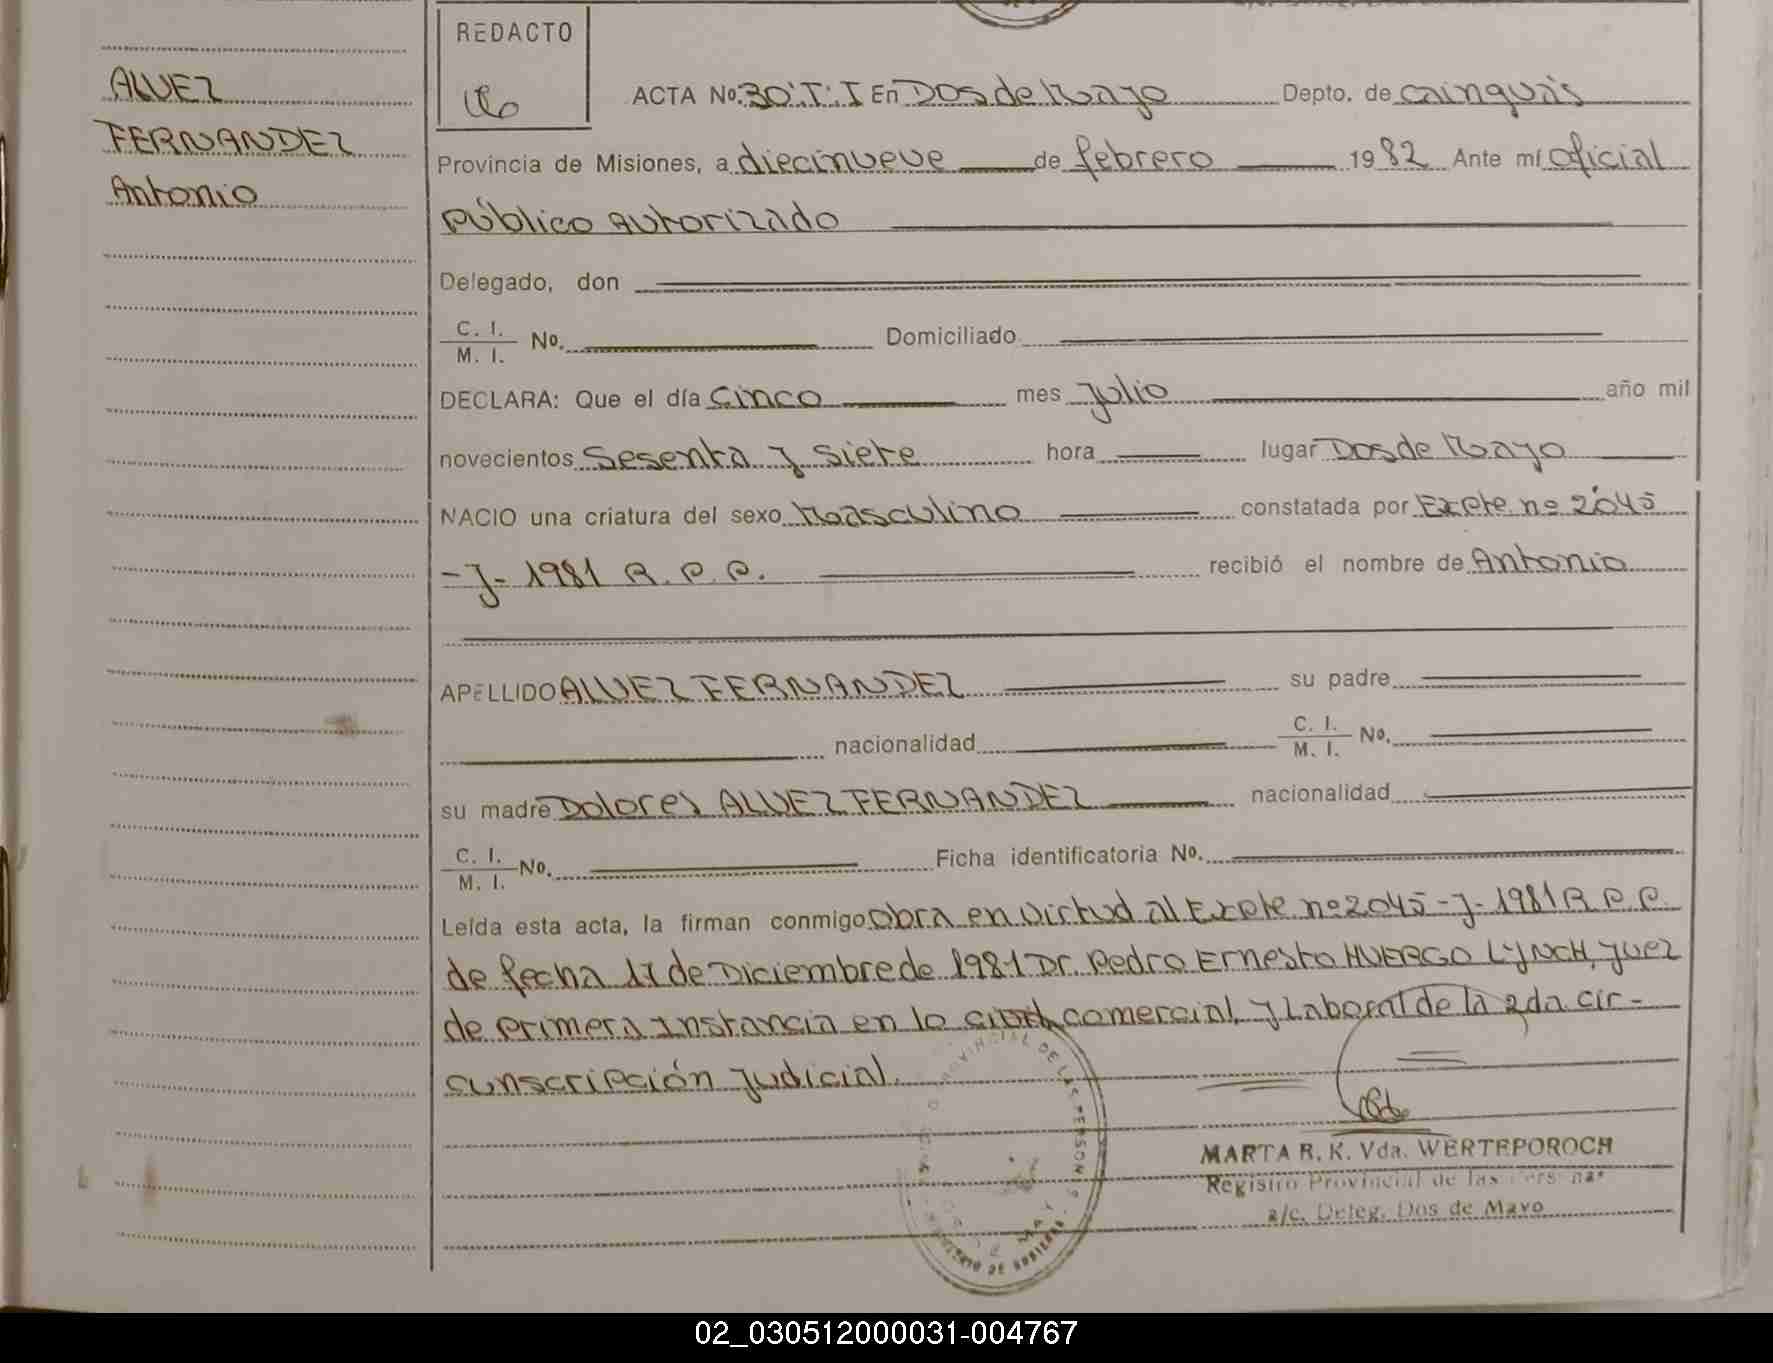 ALVEZ
FERNANDEZ
Antonio
REDACTO
ACTA No. 30 T. I En Dos de Mayo Depto. de Cainguas
Provincia de Misiones, a diecinueve de febrero 1982 Ante mí oficial
Público Autorizado
Delegado, don
C. I.
M. I. No. Domiciliado
DECLARA: Que el día Cinco mes Julio año mil
novecientos Sesenta y Siete hora lugar Dos de Mayo
NACIO una criatura del sexo Masculino constatada por Expte nº 2045
-J- 1981 R. P. P. recibió el nombre de Antonio
APELLIDO ALVEZ FERNANDEZ su padre
nacionalidad C. I.
M. I. No.
su madre Dolores ALVEZ FERNANDEZ nacionalidad
C. I.
M. I. No. Ficha identificatoria No.
Leída esta acta, la firman conmigo Obra en Virtud al Expte nº 2045-J-1981 R. P. P.
de fecha 17 de Diciembre de 1981 Dr. Pedro Ernesto HUERGO LYNCH, Juez
de Primera Instancia en lo Civil, comercial, y Laboral de la 2da cir-
cunscripción Judicial.
PROVINCIAL DE LAS PERSONAS
MARTA R. K. Vda. WERTEPOROCH
Registro Provincial de las Personas
a/c. Deleg. Dos de Mayo
02_030512000031-004767